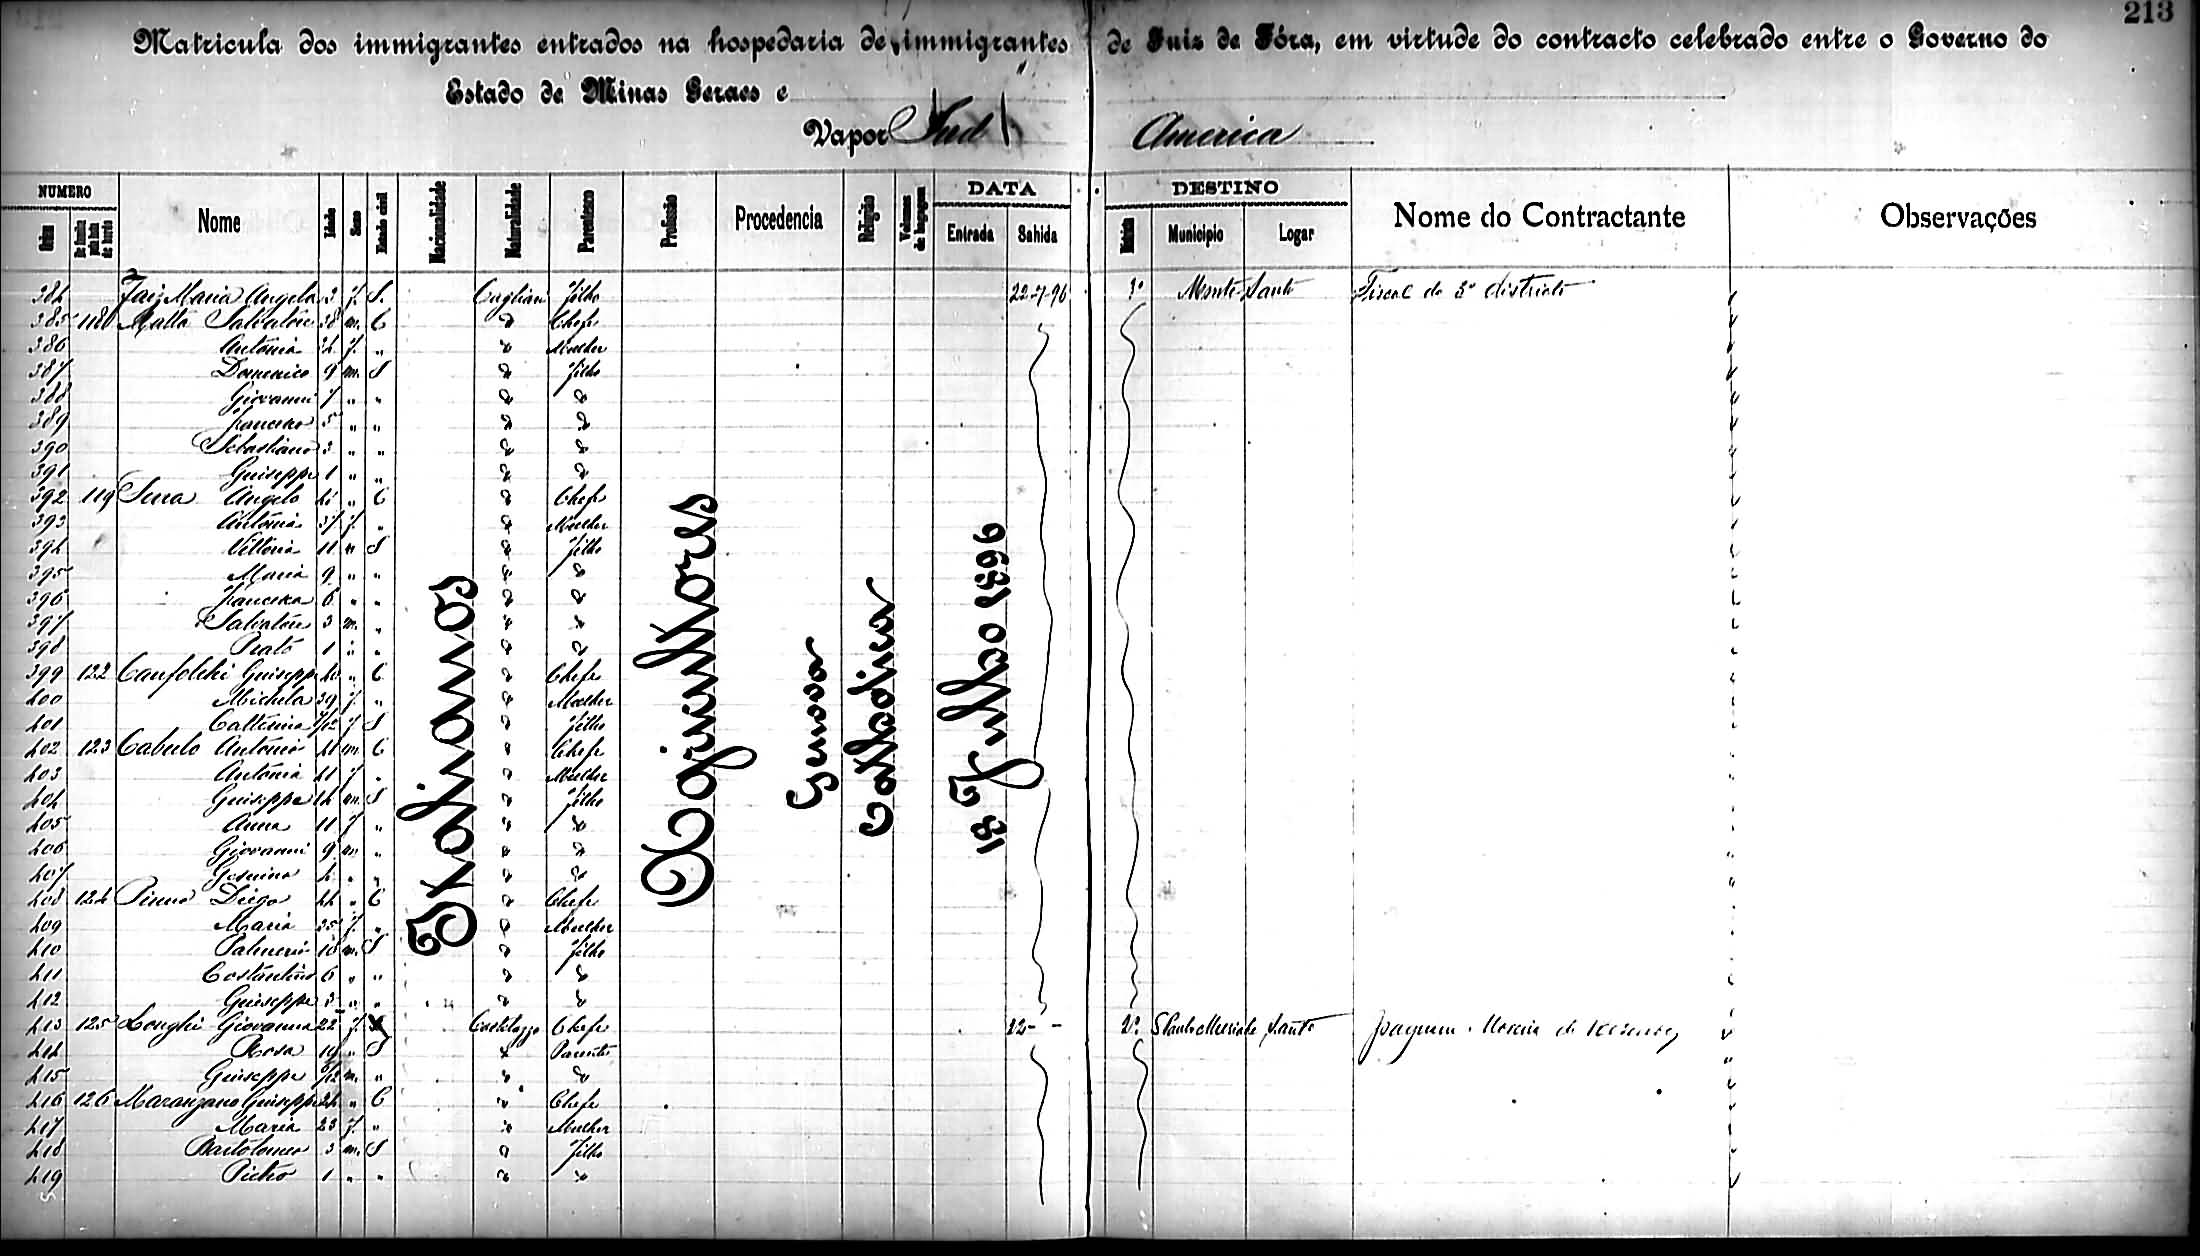 213
Matricula dos immigrantes entrados na hospedaria de immigrantes de Juiz de Fóra, em virtude do contracto celebrado entre o Governo do
Estado de Minas Geraes e
Vapor Sud America
NUMERO DATA DESTINO
Ordem Nome Idade Sexo Estado civil Nacionalidade Naturalidade Parentesco Profissão Procedencia Religião Volumes de bagagem Entrada Sahida Municipio Logar Nome do Contractante Observações
384 Maria Angela 3 f. S. Cagliari Filho 22-7-96 3º Monte Santo Fiscal do 3º districto
385 118 Matta Salvatore 38 m. C " Chefe
386 Antonia 34 f. " " Mulher
387 Domenico 9 m. S " Filho
388 Giovanni 7 " " " "
389 Francesco 5 " " " "
390 Sebastiano 3 " " " "
391 Guiseppe 1 " " " "
392 119 Serra Angelo " C " Chefe
393 Antonia 37 f. " " Mulher
394 Vittoria 11 " S " Filho
395 Maria 9 " " " "
396 Francesca 6 " " " "
397 Salvatore 3 m. " " "
398 1 " " " "
399 122 Guisepp 40 " C " Chefe
400 Michela 39 f. " " Mulher
401 Catterina f S " Filho
402 123 Cabulo Antonio m C " Chefe
403 Antonia 41 f " " Mulher
404 Guiseppe 14 m. S " Filho
405 Anna 11 f " " "
406 Giovanni 9 m. " " "
407 4 " " " "
408 124 Pinna Diego 44 " C " Chefe
409 Maria 35 f. " " Mulher
410 m. S " Filho
411 Costantino 6 " " " "
412 Guiseppe 3 " " " "
413 125 Longhi Giovanna 22 f. Chefe 22 - - 2º
414 Rosa 19 " S " Parente
415 Guiseppe m. " " "
416 126 Maranzano Guisepp 24 " C " Chefe
417 Maria 23 f. " " Mulher
418 Bartolomeo 3 m. S " Filho
419 Pietro 1 " " " "
Italianos
Agricultores
Genova
Catholica
18 Julho 1896